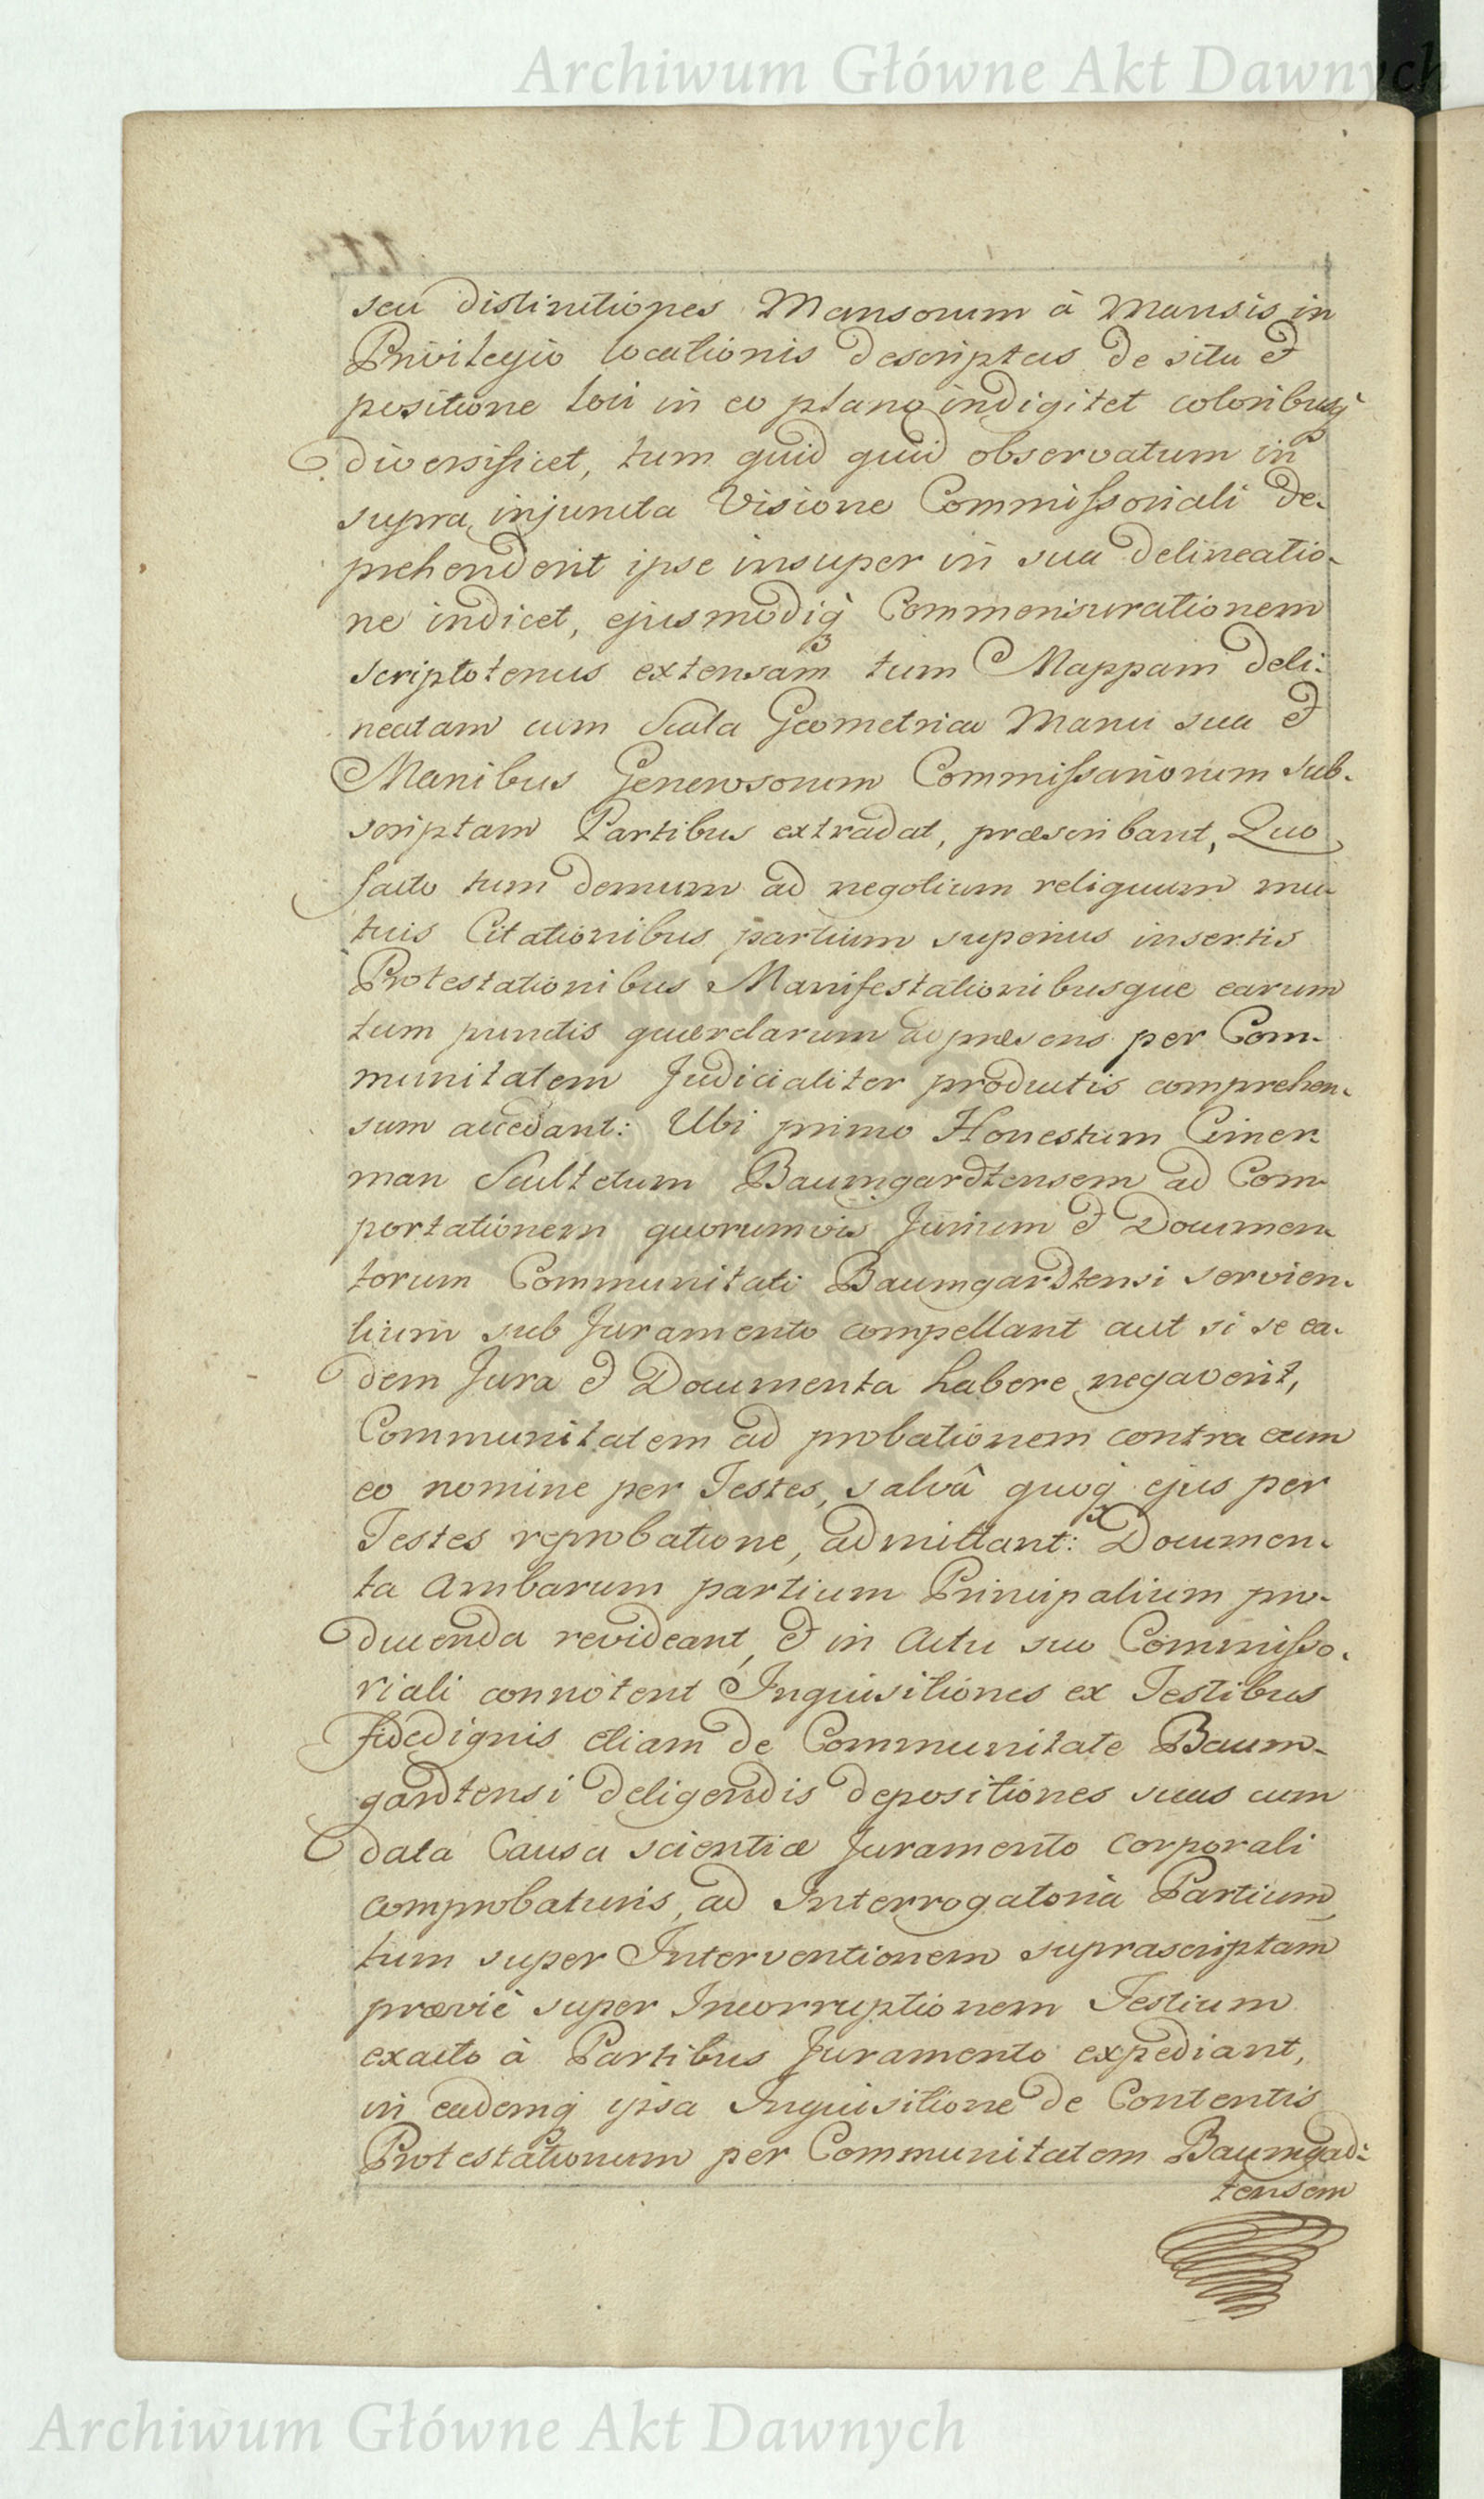 Archiwum Główne Akt Dawnych
seu distinctiones Mansorum à Mansis in
Privilegio locationis descriptas de situ et
positione loci in eo plano indigitet coloribusq̀
diversificet, tum quid quid observatum in
supra injuncta Visione Commissoriali de-
prehenderit ipse insuper in sua delineatio-
ne indicet, ejusmodiq̀ Commensurationem
scriptotenus extensam tum Mappam deli-
neatam cum Scala Geometrica Manu sua et
Manibus Generosorum Commissariorum sub-
scriptam Partibus extradat, præscribant, Quo
facto tum demum ad negotium reliquum mu-
tuis Citationibus partium superius insertis
Protestationibus Manifestationibusque earum
tum punctis querelarum ad præsens per Com-
munitatem Judicialiter productis comprehen-
sum accedant: Ubi primo Honestum Cimer-
man Scultetum Baumgardtensem ad Com-
portationem quorumvis Jurium et Documen-
torum Communitati Baumgardtensi servien-
tium sub Juramento compellant aut si se ea-
dem Jura et Documenta habere negaverit,
Communitatem ad probationem contra eum
eo nomine per Testes, salvâ quoq̀ ejus per
Testes reprobatione, admittant: Documen-
ta Ambarum partium Principalium pro-
ducenda revideant, et in Actu suo Commisso-
riali connotent Inquisitiones ex Testibus
fidedignis etiam de Communitate Baum-
gardtensi deligendis depositiones suas cum
data Causa scientiæ Juramento corporali
comprobaturis, ad Interrogatoria Partium,
tum super Interventionem suprascriptam
prævie super Incorruptionem Testium
exacto à Partibus Juramento expediant,
in eademq̀ ipsa Inquisitione de Contentis
Protestationum per Communitatem Baumgad-
tensem
Archiwum Główne Akt Dawnych